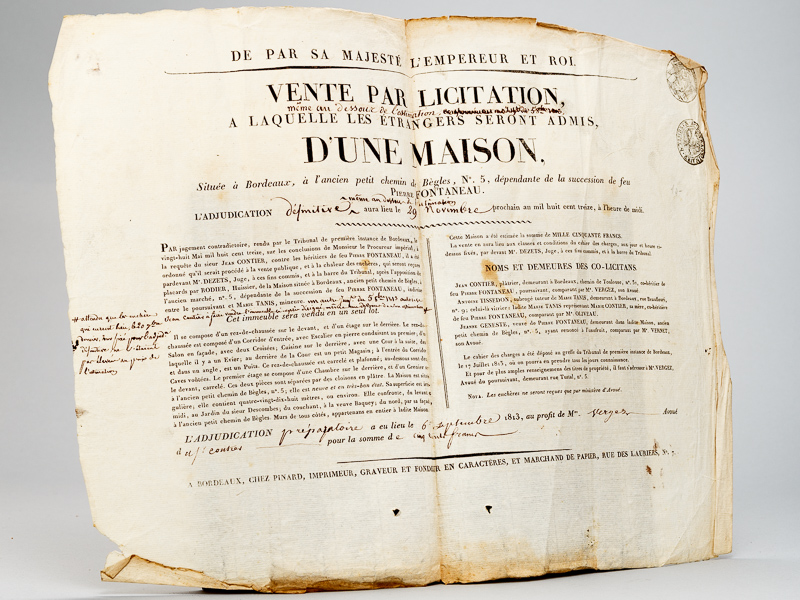 DE PAR SA MAJESTÉ L'EMPEREUR ET ROI.
VENTE PAR LICITATION,
même au dessous de l'estimation,
A LAQUELLE LES ÉTRANGERS SERONT ADMIS,
D'UNE MAISON,
Située à Bordeaux, à l'ancien petit chemin de Bègles, N°. 5, dépendante de la succession de feu
PIERRE FONTANEAU.
même au dessous de l'estimation
L'ADJUDICATION définitive aura lieu le 29 Novembre prochain au mil huit cent treize, à l'heure de midi.
PAR jugement contradictoire, rendu par le Tribunal de première instance de Bordeaux, le
vingt-huit Mai mil huit cent treize, sur les conclusions de Monsieur le Procureur impérial, à
la requête du sieur JEAN CONTIER, contre les héritiers de feu PIERRE FONTANEAU, il a été
ordonné qu'il serait procédé à la vente publique, et à la chaleur des enchères, qui seront reçues
pardevant M. DEZETS, Juge, à ces fins commis, et à la barre du Tribunal, après l'apposition de
placards par RODIER, Huissier, de la Maison située à Bordeaux, ancien petit chemin de Bègles, n°. 5,
l'ancien marché, n°. 5, dépendante de la succession de feu PIERRE FONTANEAU, indivise
entre le poursuivant et MARIE TANIS, mineure.
Cet immeuble sera vendu en un seul lot.
Il se compose d'un rez-de-chaussée sur le devant, et d'un étage sur le derrière. Le rez-de-
chaussée est composé d'un Corridor d'entrée, avec Escalier en pierre conduisant au premier; d'un
Salon en façade, avec deux Croisées; Cuisine sur le derrière, avec une Cour à la suite, dans
laquelle il y a un Evier; au derrière de la Cour est un petit Magasin; à l'entrée du Corridor
et dans un angle, est un Puits. Ce rez-de-chaussée est carrelé et plafonné, au-dessous sont deux
Caves voûtées. Le premier étage se compose d'une Chambre sur le derrière, et d'un Grenier sur
le devant, carrelé. Ces deux pièces sont séparées par des cloisons en plâtre. La Maison est située
à l'ancien petit chemin de Bègles, n°. 5; elle est neuve et en très-bon état. Sa superficie est irré-
gulière; elle contient quatre-vingt-dix-huit mètres, ou environ. Elle confronte, du levant et
midi, au Jardin du sieur Descombes, du couchant, à la veuve Raquey; du nord, par sa façade,
à l'ancien petit chemin de Bègles. Murs de tous côtés, appartenans en entier à ladite Maison.
Cette Maison a été estimée la somme de MILLE CINQUANTE FRANCS.
La vente en aura lieu aux clauses et conditions du cahier des charges, aux jour et heure ci-
dessus fixés, par devant M. DEZETS, Juge, à ces fins commis, et à la barre du Tribunal.
NOMS ET DEMEURES DES CO-LICITANS
JEAN CONTIER, plâtrier, demeurant à Bordeaux, chemin de Toulouse, n°. 50, co-héritier de
feu PIERRE FONTANEAU, poursuivant, comparant par Me. VERGEZ, son Avoué.
ANTOINE TISSEDON, subrogé tuteur de MARIE TANIS, demeurant à Bordeaux,
FONTANEAU, comparant par Me. OLIVEAU.
JEANNE GENESTE, veuve de PIERRE FONTANEAU, demeurant dans ladite Maison, ancien
petit chemin de Bègles, n°. 5, ayant renoncé à l'usufruit, comparant par Me. VERNET,
son Avoué.
Le cahier des charges a été déposé au greffe du Tribunal de première instance de Bordeaux,
le 17 Juillet 1813, où on pourra en prendre toujours connaissance.
Et pour de plus amples renseignemens des titres de propriété, il faut s'adresser à Me. VERGEZ,
Avoué du poursuivant, demeurant rue n°. 5.
NOTA. Les enchères ne seront reçues que par ministère d'Avoué.
L'ADJUDICATION préparatoire a eu lieu le 6 septembre 1813, au profit de Me. Vergez Avoué
pour la somme de
A BORDEAUX, CHEZ PINARD, IMPRIMEUR, GRAVEUR ET FONDEUR EN CARACTÈRES, ET MARCHAND DE PAPIER, RUE DES LAURIERS, N°. 7.